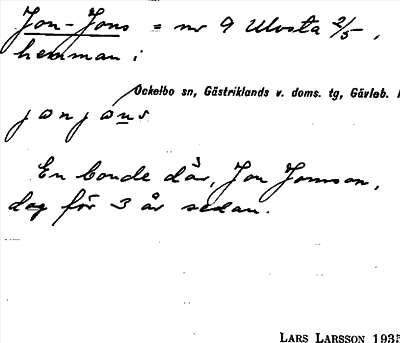 Jon-Jons = nr 9 Ulvsta 2/5,
hemman i
Ockelbo sn, Gästriklands v. doms. tg, Gävleb. l
jonjons
En bonde där, Jon Jonsson,
dog för 3 år sedan.
LARS LARSSON 1935